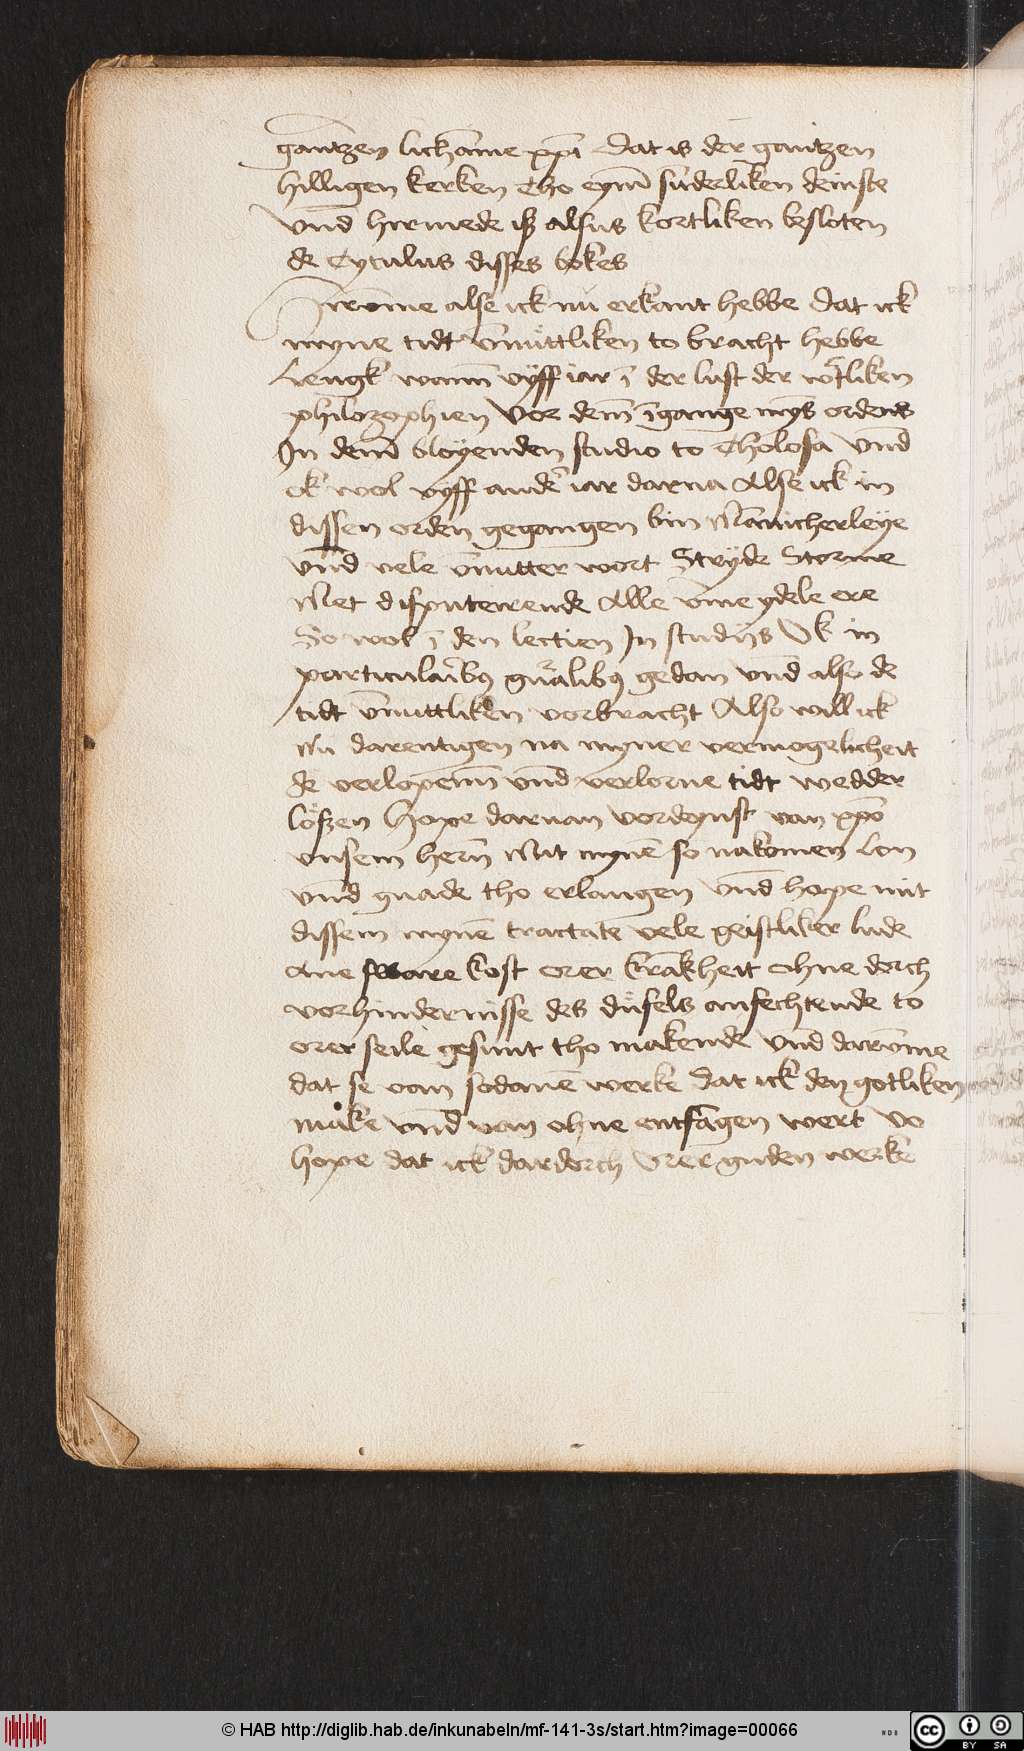 gantzen lichāme xp̄i dat is der gantzen
hilligen kerken Tho eynē sūderliken deinste
vnd hirmede iß alsus kortliken besloten
de Tytulus disses bokes
Irōme alse ick nu erkant hebbe dat ick
myne tidt vn̄nuttliken to bracht hebbe
Lengk wann vyff iar ī der lust der w̄tliken
philozophien vor dem īgange mȳs ordens
In dem bloyenden studio to Tholosa vnd
ok wol vyff ander iar darna Alse ick in
dissen orden gegangen bin Mānicherleye
vnd vele vn̄nutter wort Stryde Storme
Met disputerende Alle vm̄e ydele ere
So wol ī den lectien In studijs Ok in
particularibꝰ gn̄ralibꝰ gedan vnd also de
tidt vn̄nuttliken vorbracht Also will ick
Nu darentigen na myner vermogelicheit
de verlopenn vnd verlorne tidt wedder
lößen Hope daruan vordeynst van xp̄o
vnsem hern Mit mynē so nakomen Lon
vnd gnade tho erlangen vnd hope mit
dissem mynē tractate vele geistliker lude
Ane sware kost orer krākheit ohne dorch
vorhindernisse des düfels anfechtende to
orer seile gesunt tho makende vnd darōme
dat se van sodanē werke dat ick den gotliken
make vnd van ohne entfāgen wert vo
hope dat ick dardorch Orer guden werke
© HAB http://diglib.hab.de/inkunabeln/mf-141-3s/start.htm?image=00066
WDB
cc BY SA